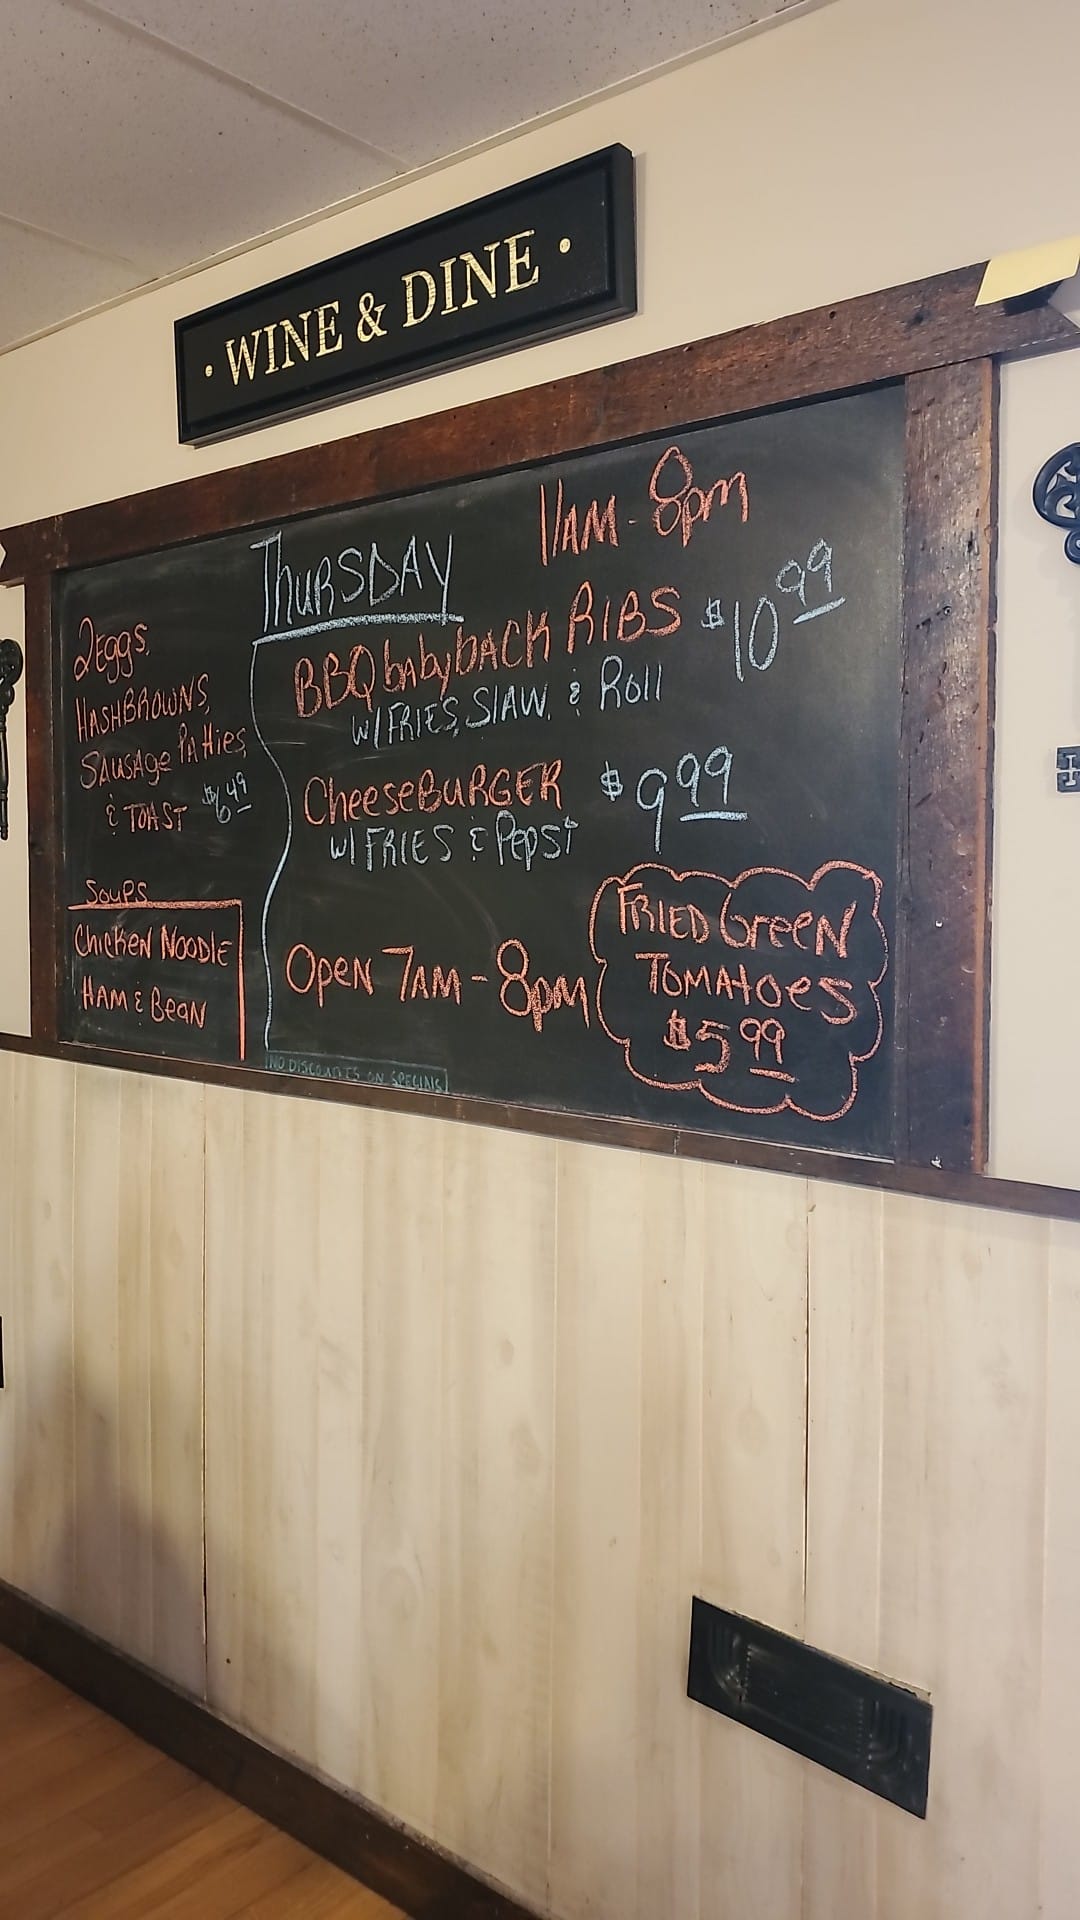 • WINE & DINE •
THURSDAY
11AM - 8pm
2 Eggs,
HASHBROWNS,
SAUSAge PAtties,
& TOAST $6.49
Soups
Chicken NOODLE
HAM & BeAN
BBQ babybACK RIBS $10.99
w/ FRIES, SlAW, & Roll
CheeseBURGER $9.99
w/ FRIES & Pepsi
Open 7AM - 8pm
FRIED GreeN
TOMAtoes
$5.99
NO DISCOUNTS ON SPECIALS